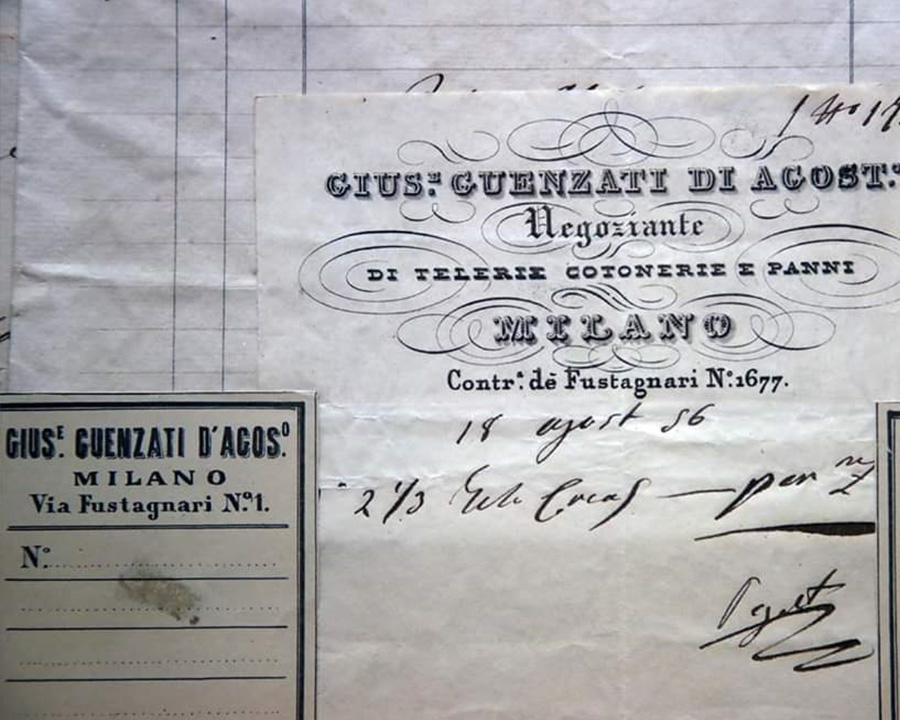 GIUSᴱ. GUENZATI DI AGOST.º
Negoziante
DI TELERIE COTONERIE E PANNI
MILANO
Contrª. de Fustagnari Nº.1677.
18 agost 56
2 1/3
GIUSᴱ. GUENZATI D'AGOSº.
MILANO
Via Fustagnari Nº.1.
Nº.